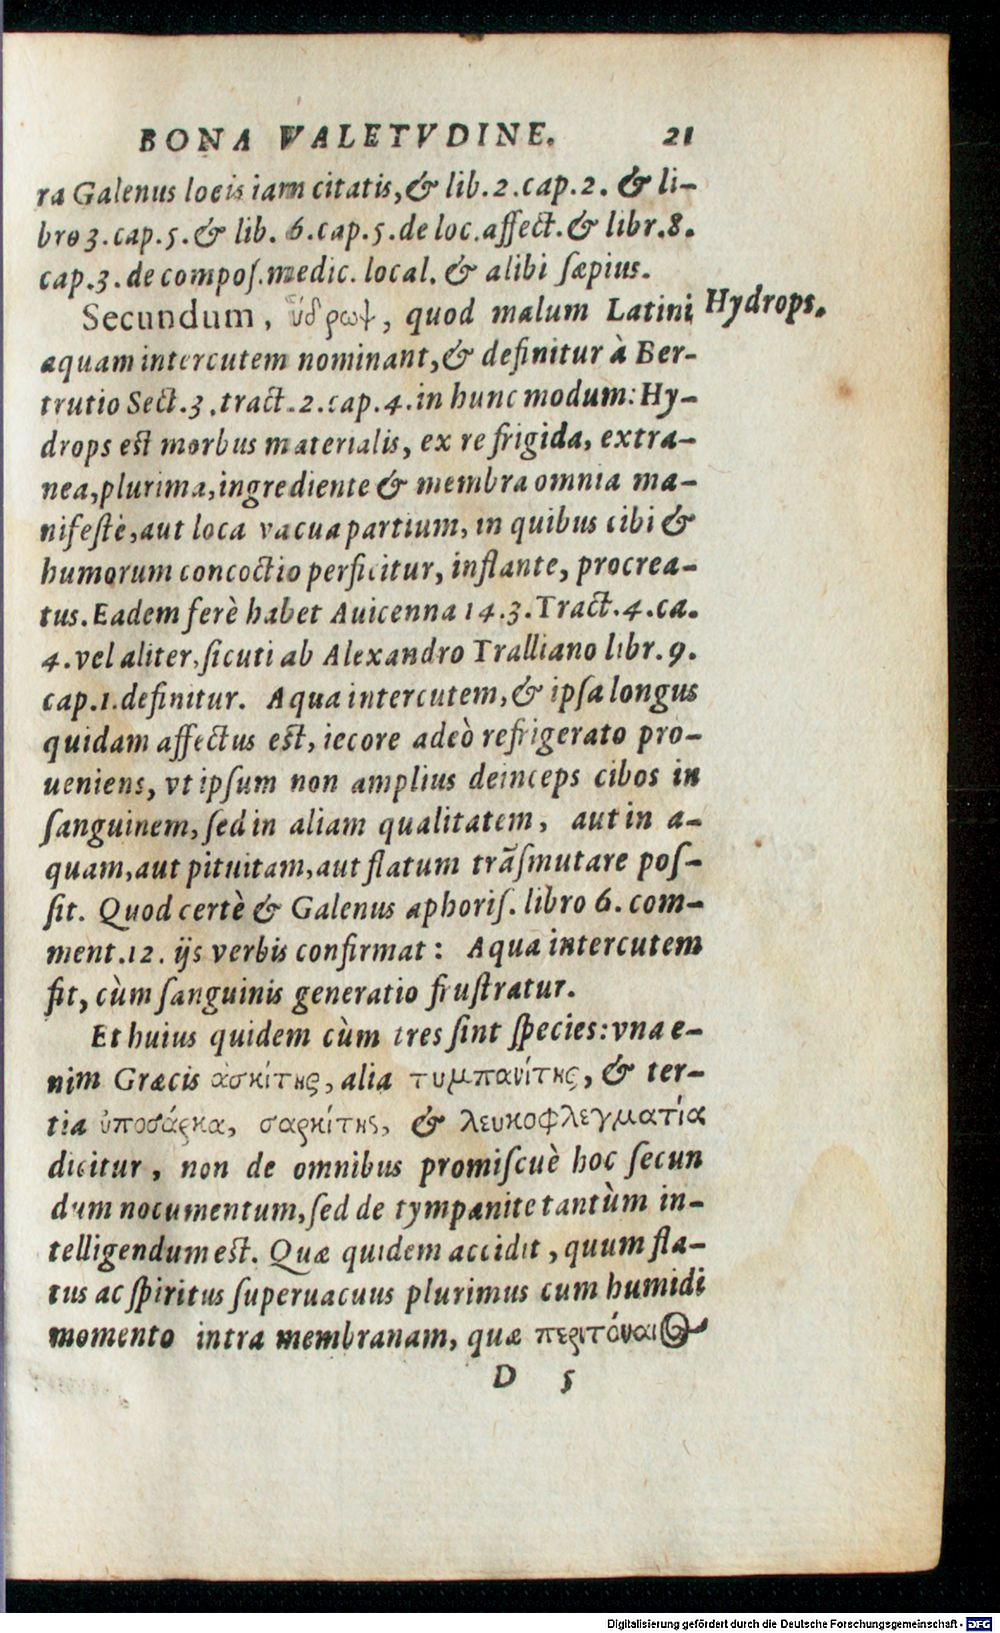 BONA VALETVDINE. 21
ra Galenus locis iam citatis, & lib. 2. cap. 2. & li-
bro 3. cap. 5. & lib. 6. cap. 5. de loc. affect. & libr. 8.
cap. 3. de compos. medic. local. & alibi sæpius.
Secundum, ὕδρωψ, quod malum Latini
Hydrops.
aquam intercutem nominant, & definitur à Ber-
trutio Sect. 3. tract. 2. cap. 4. in hunc modum: Hy-
drops est morbus materialis, ex re frigida, extra-
nea, plurima, ingrediente & membra omnia ma-
nifestè, aut loca vacua partium, in quibus cibi &
humorum concoctio perficitur, inflante, procrea-
tus. Eadem ferè habet Auicenna 14. 3. Tract. 4. ca.
4. vel aliter, sicuti ab Alexandro Tralliano libr. 9.
cap. 1. definitur. Aqua intercutem, & ipsa longus
quidam affectus est, iecore adeò refrigerato pro-
ueniens, vt ipsum non amplius deinceps cibos in
sanguinem, sed in aliam qualitatem, aut in a-
quam, aut pituitam, aut flatum trãsmutare pos-
sit. Quod certè & Galenus aphoris. libro 6. com-
ment. 12. ijs verbis confirmat: Aqua intercutem
fit, cùm sanguinis generatio frustratur.
Et huius quidem cùm tres sint species: vna e-
nim Græcis ἀσκίτης, alia τυμπανίτης, & ter-
tia ὑποσάρκα, σαρκίτης, & λευκοφλεγματία
dicitur, non de omnibus promiscuè hoc secun
dum nocumentum, sed de tympanite tantùm in-
telligendum est. Quæ quidem accidit, quum fla-
tus ac spiritus superuacuus plurimus cum humidi
momento intra membranam, quæ περιτόναιος
D 5
Digitalisierung gefördert durch die Deutsche Forschungsgemeinschaft - DFG